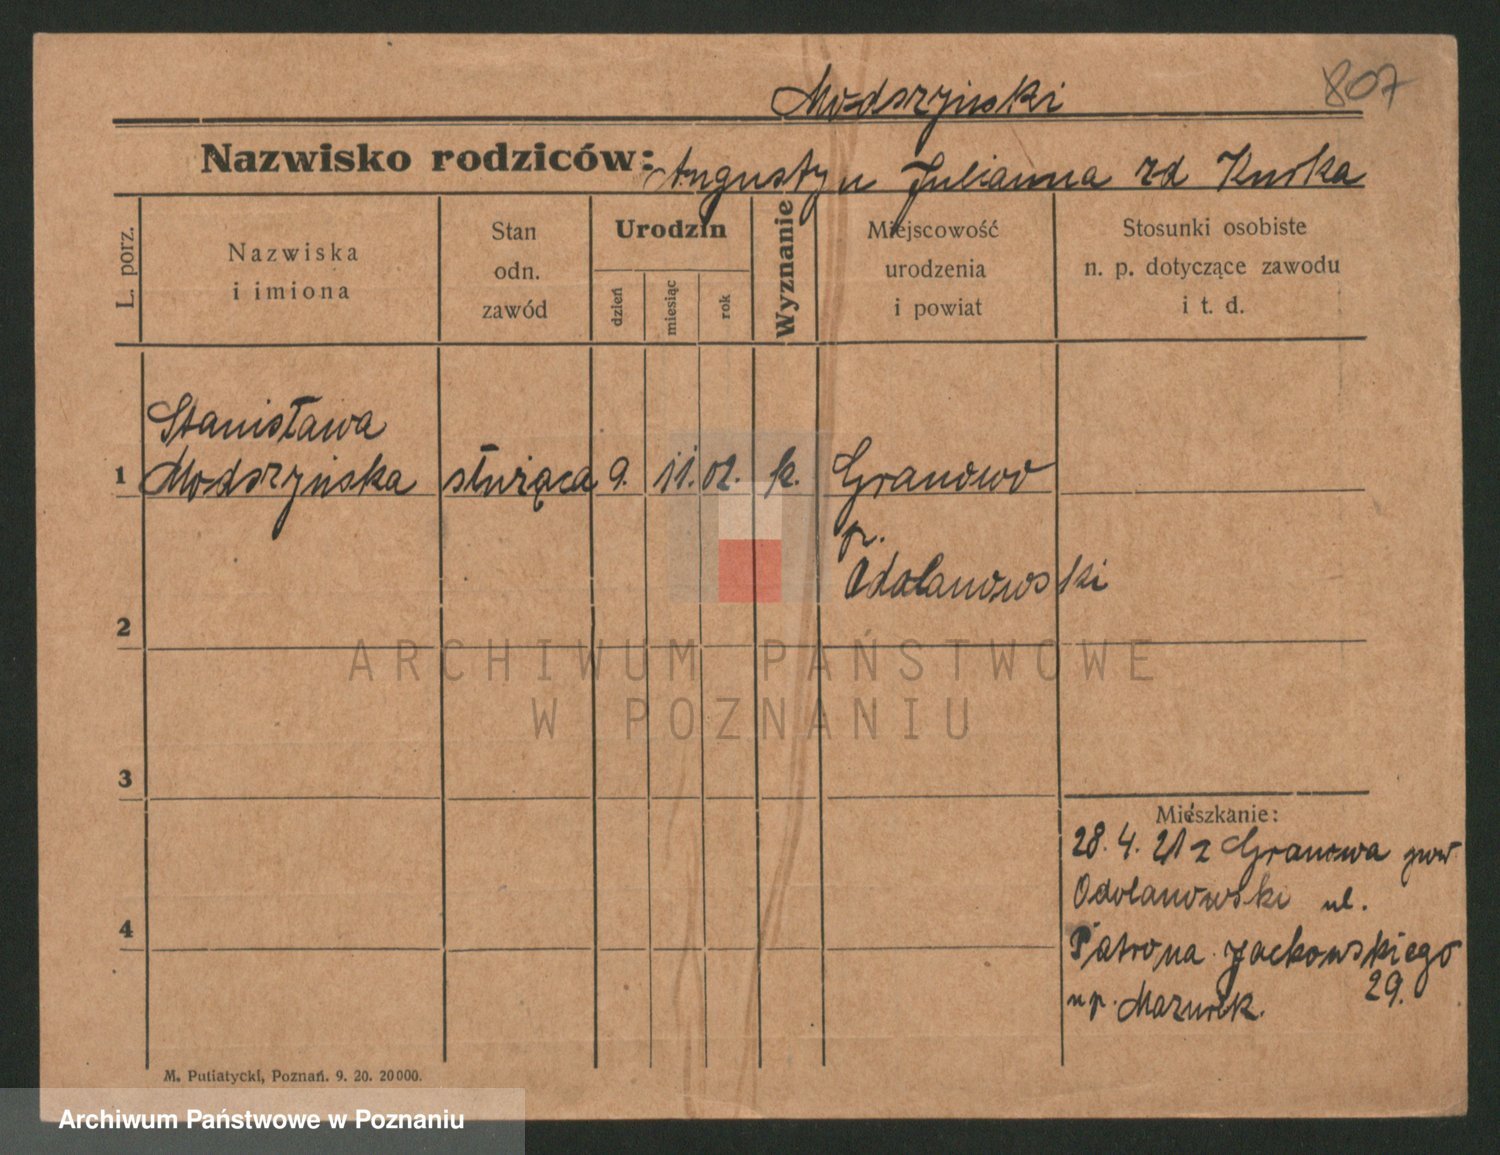 807
Modszyński
Nazwisko rodziców: Augustyn Julianna rd Kurka
L. porz.
Nazwiska
i imiona
Stan
odn.
zawód
Urodzin
dzień
miesiąc
rok
Wyznanie
Miejscowość
urodzenia
i powiat
Stosunki osobiste
n. p. dotyczące zawodu
i t. d.
Stanisława
1 Modszyńska służąca 9. 11. 02. k. Granowo
p.
Odolanowski
2
ARCHIWUM PAŃSTWOWE
W POZNANIU
3
Mieszkanie:
28. 4. 21 z Granowa pow
Odolanowski ul.
4
Patrona Jackowskiego
29.
up. Mazurek.
M. Putiatycki, Poznań. 9. 20. 20000.
Archiwum Państwowe w Poznaniu